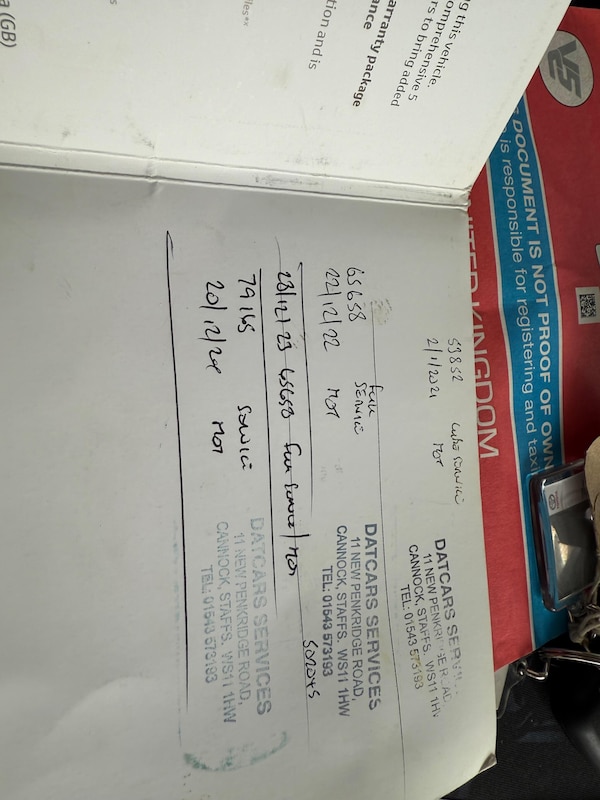 g this vehicle.
omprehensive
rs to bring added
arranty package
ance
tion and is
iles**
a (GB)
V5
DOCUMENT IS NOT PROOF OF OWN
is responsible for registering and taxi
UNITED KINGDOM
59852 Lube Service
2/1/2021 MOT
DATCARS SERVI
11 NEW PENKRIDGE ROAD
CANNOCK, STAFFS. WS11 1HW
TEL: 01543 573193
65658 Full Service
22/12/22 MOT
DATCARS SERVICES
11 NEW PENKRIDGE ROAD,
CANNOCK, STAFFS. WS11 1HW
TEL: 01543 573193
28/12/23 65658 Full Service/MOT
79165 Service
20/12/24 MOT
DATCARS SERVICES
11 NEW PENKRIDGE ROAD,
CANNOCK, STAFFS. WS11 1HW
TEL: 01543 573193